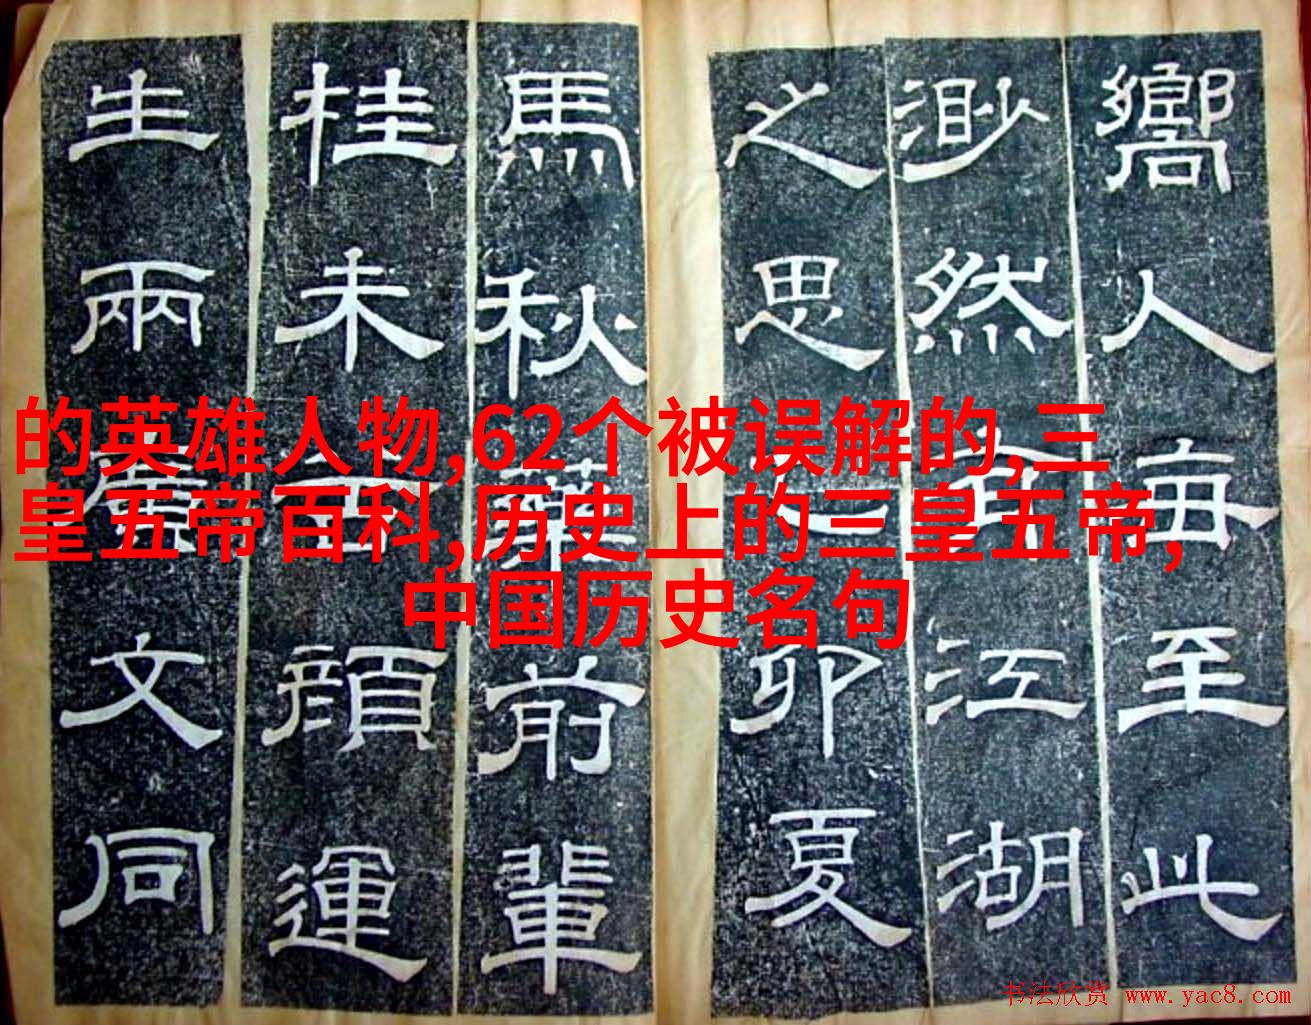 的英雄人物,62个被误解的,三
皇五帝百科,历史上的三皇五帝,
中国历史名句
嚮人每至此
渺然江湖
之思卯夏
馬秋藥前輩
桂未顏運
生兩文同
书法欣赏 www.yac8.com